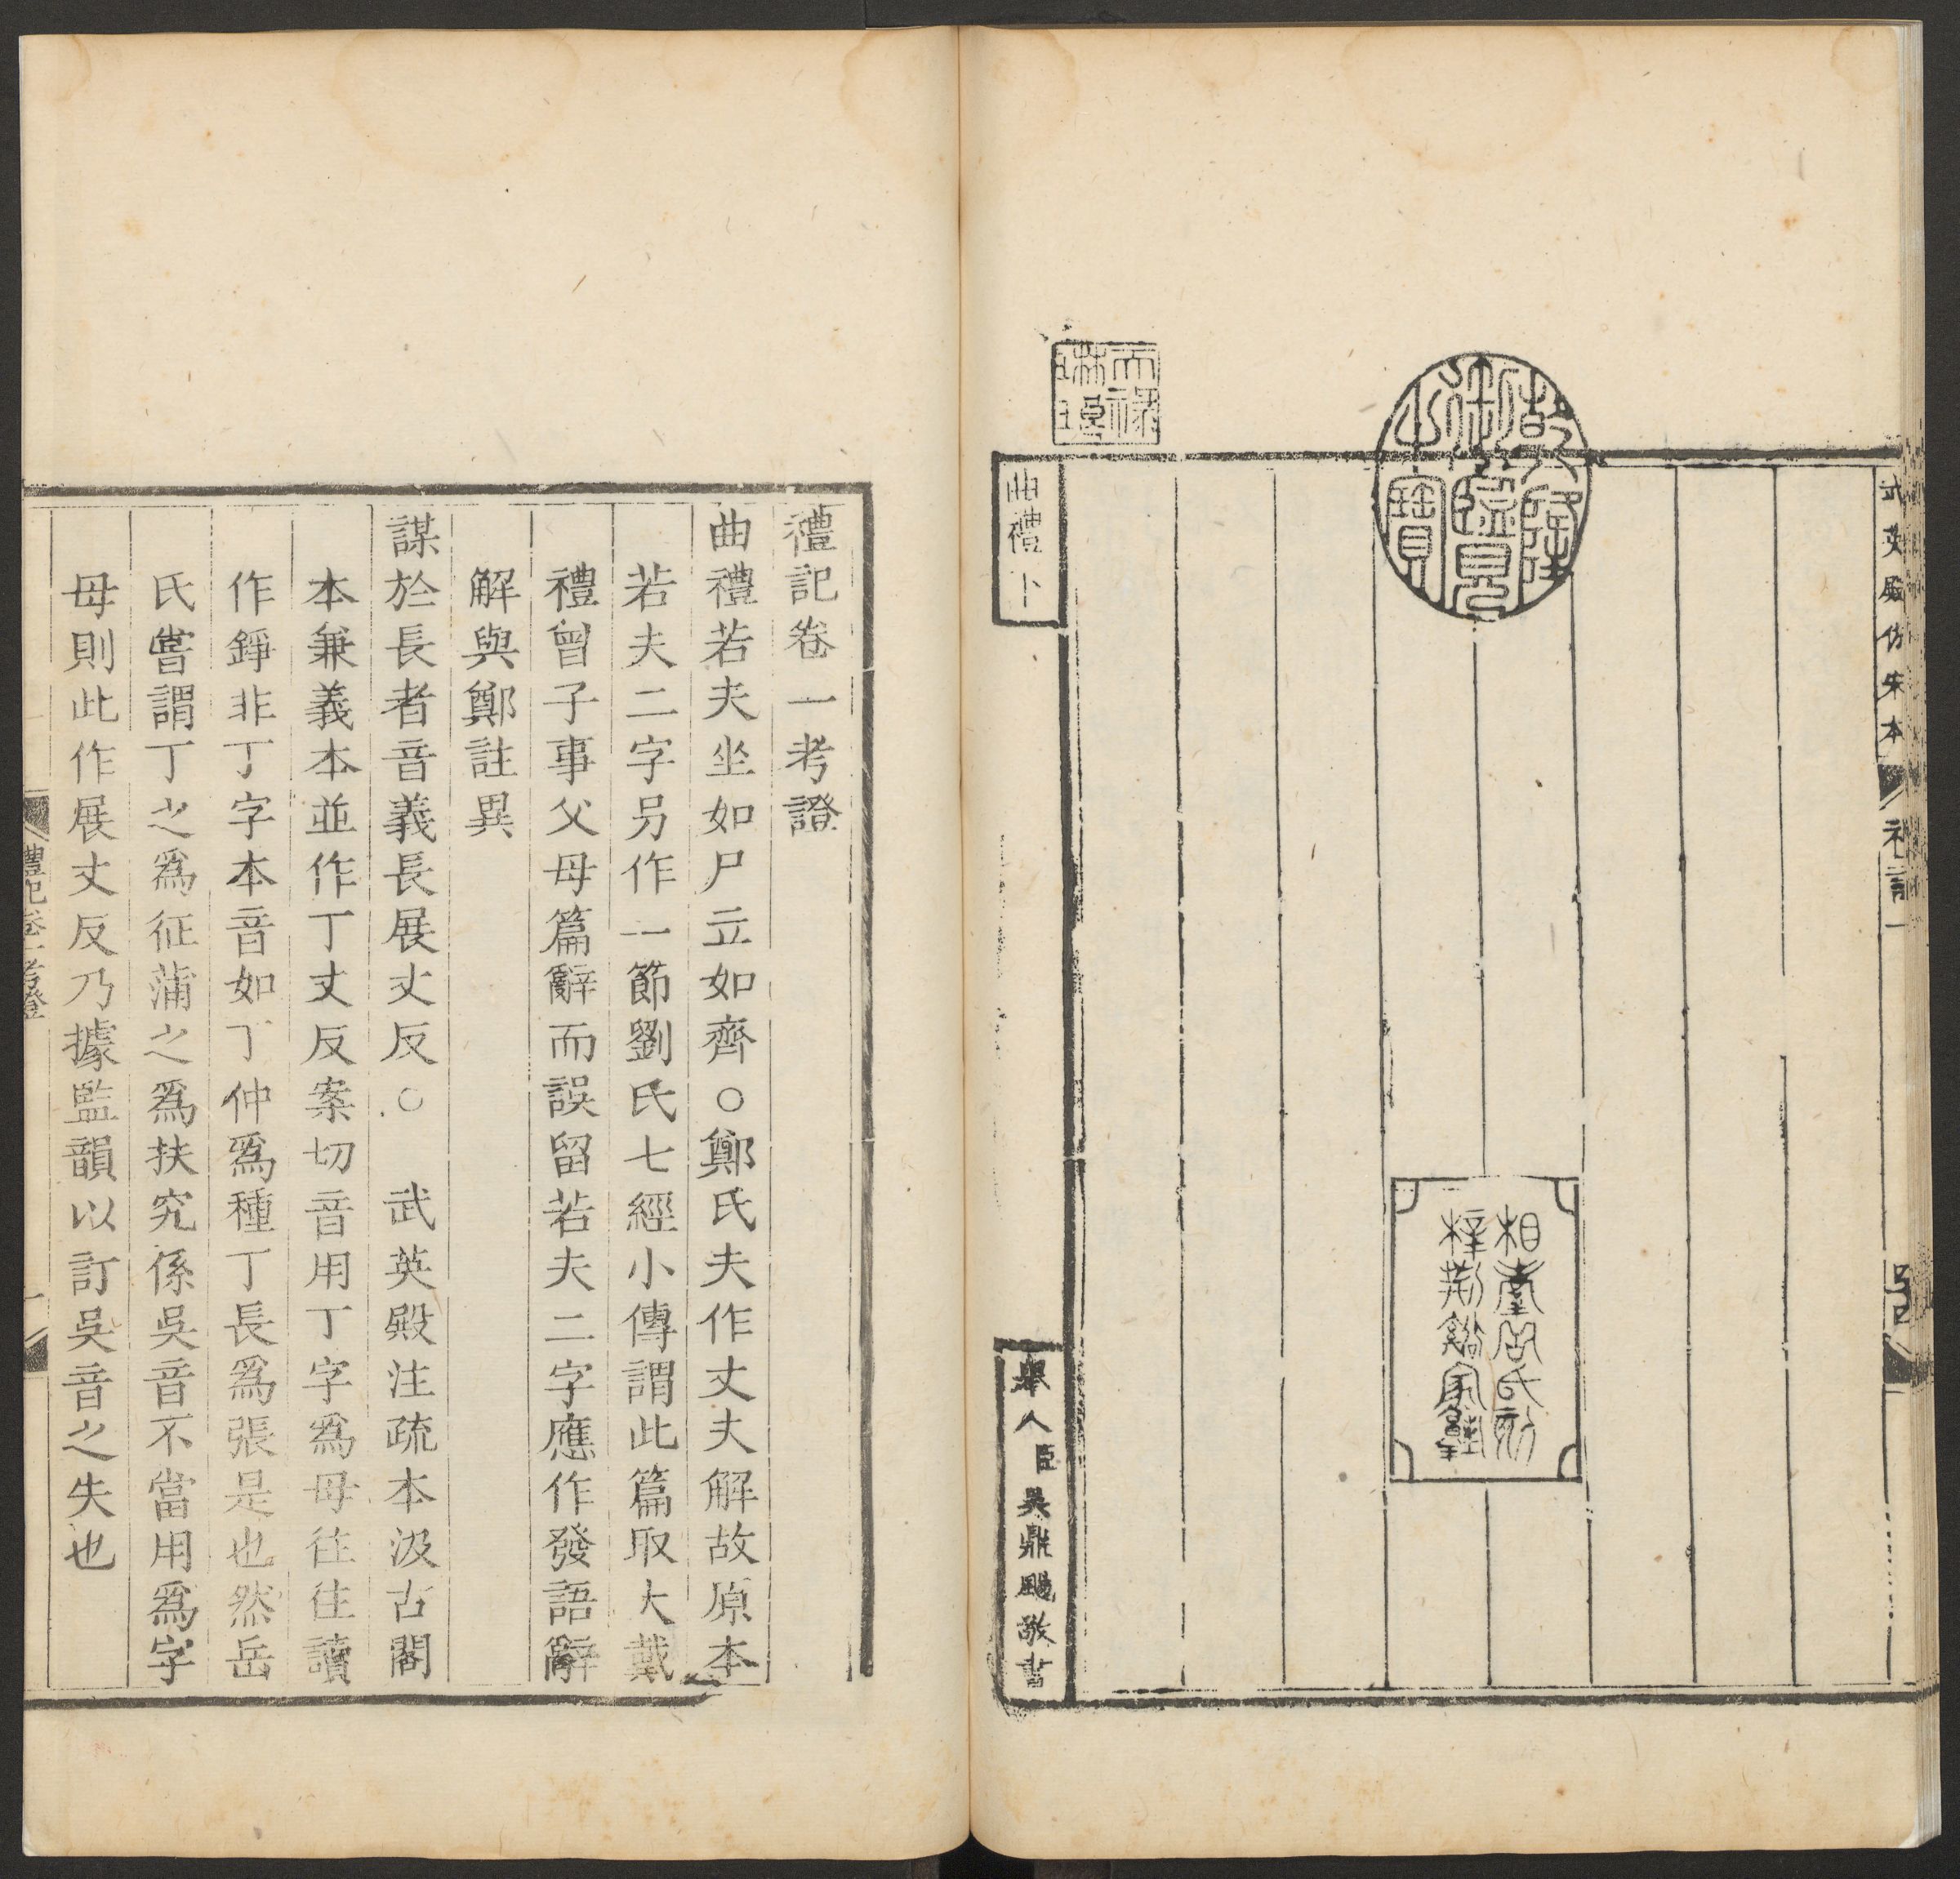 武英殿仿宋本
礼記一
乾隆
御覽
之寶
天祿
琳琅
相臺岳氏刻
梓荆谿家塾
曲禮卜
舉人臣吳鼎颺敬書
禮記卷一考證
曲禮若夫坐如尸立如齊○鄭氏夫作丈夫解故原本
若夫二字另作一節劉氏七經小傳謂此篇取大戴
禮曾子事父母篇辭而誤留若夫二字應作發語辭
解與鄭註異
謀於長者音義長展丈反○　武英殿注疏本汲古閣
本兼義本並作丁丈反案切音用丁字爲母往往讀
作錚非丁字本音如丁仲爲種丁長爲張是也然岳
氏嘗謂丁之爲征蒲之爲扶究係吳音不當用爲字
母則此作展丈反乃據監韻以訂吳音之失也
禮記卷一考證
一